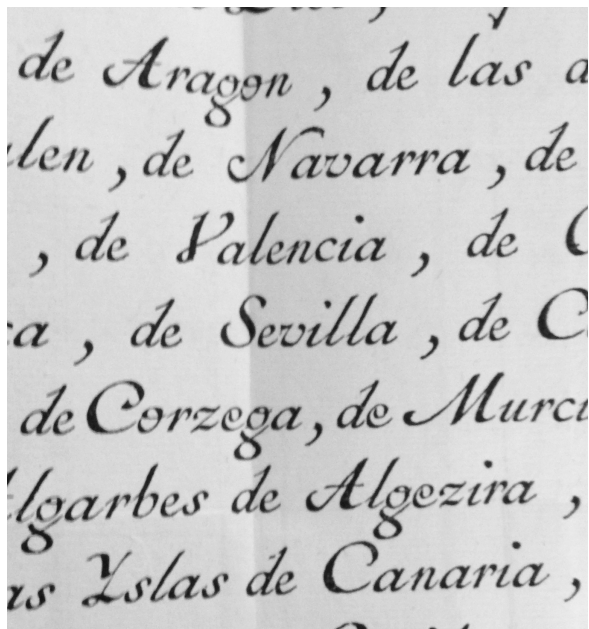 de Aragon, de las
len, de Navarra, de
, de Valencia, de
a, de Sevilla, de
de Corzega, de Murci
lgarbes de Algezira,
as Yslas de Canaria,